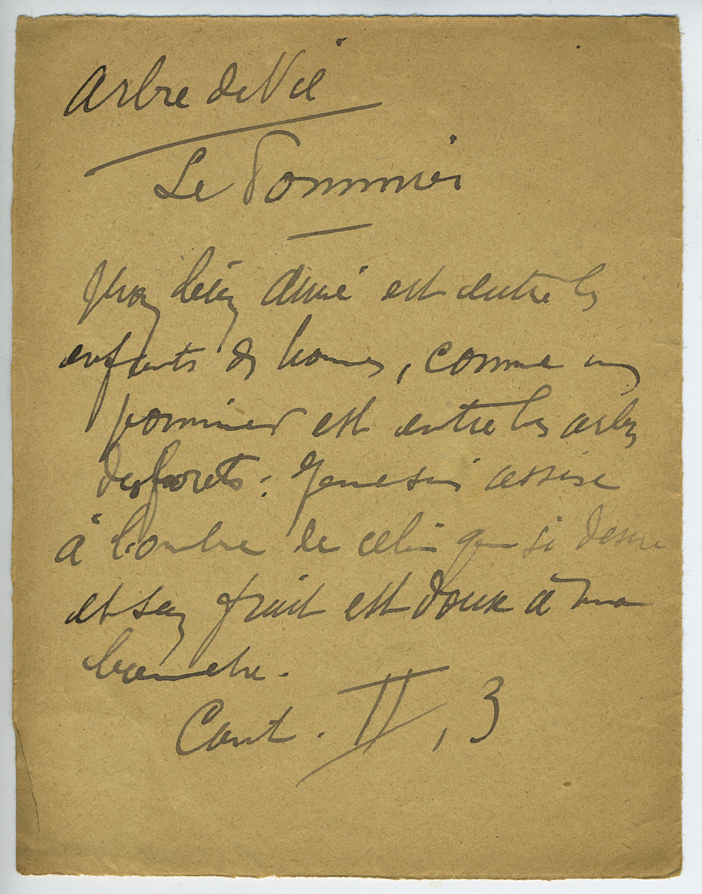 Arbre de Vie
Le Pommier
Mon bien aimé est entre les
enfants des hommes, comme un
pommier est entre les arbres
des forets : Je me suis assise
à l'ombre de celui que j'ai désiré
et son fruit est doux à ma
bouche.
Cant. II, 3